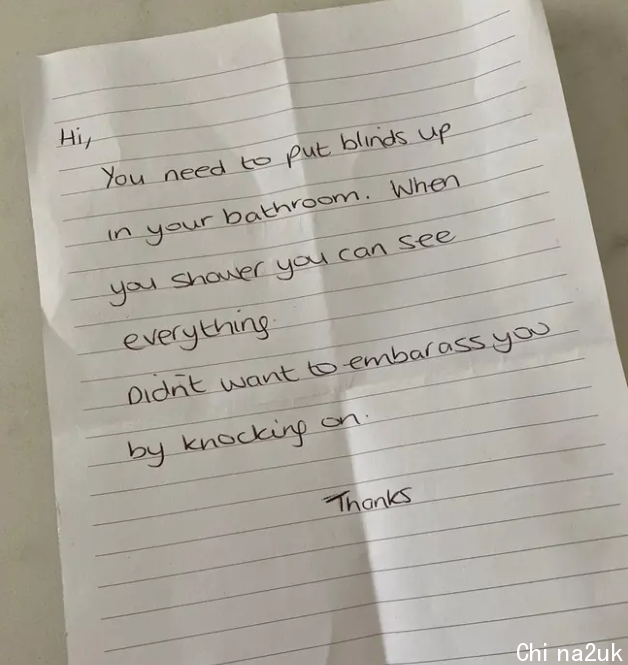 Hi,
You need to put blinds up
in your bathroom. When
you shower you can see
everything.
Didn't want to embarass you
by knocking on.
Thanks
Chi na2uk